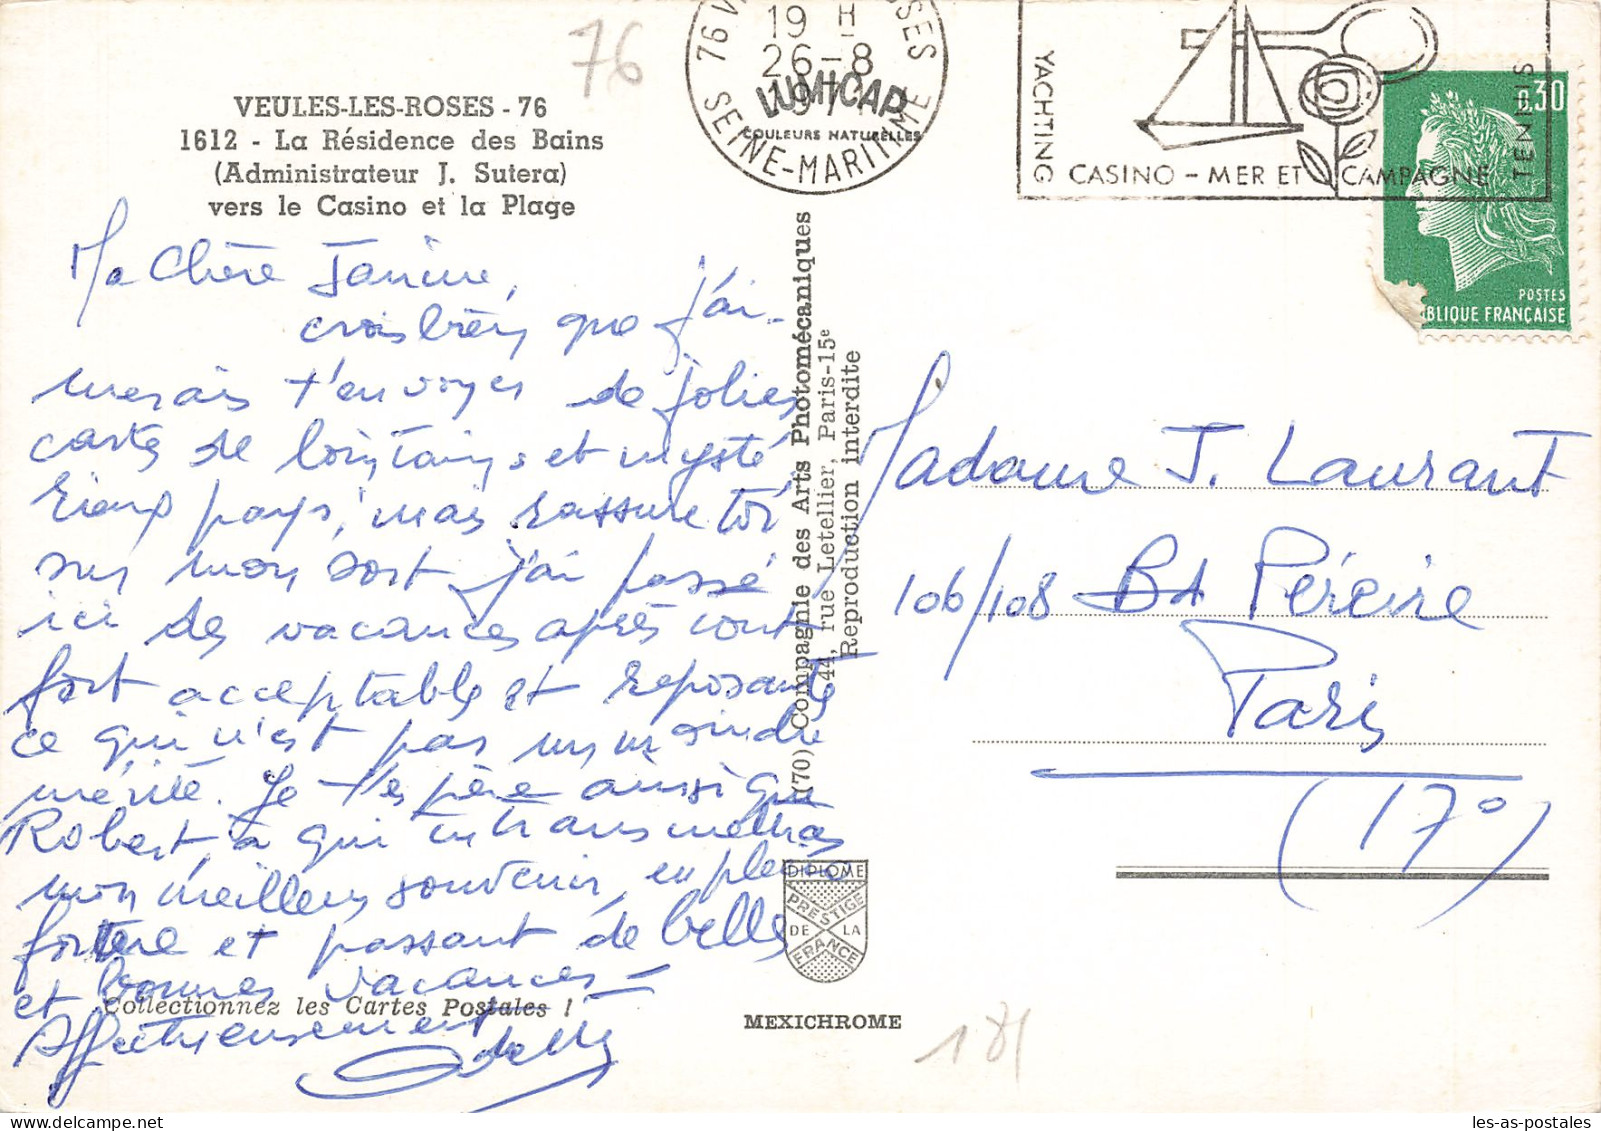 76
VEULES-LES-ROSES - 76
1612 - La Résidence des Bains
(Administrateur J. Sutera)
vers le Casino et la Plage
19 H
26-8
SEINE-MARITIME
LUMICAP
COULEURS NATURELLES
YACHTING
CASINO - MER ET CAMPAGNE
TENNIS
0,30
POSTES
BLIQUE FRANÇAISE
Ma Chère Janine,
crois bien que j'ai-
merais t'envoyer de jolies
cartes de lointains et mysté
rieux pays, mais rassure toi
sur mon sort j'ai passé
ici des vacances après tout
fort acceptable et reposante
ce qui n'est pas un moindre
mérite. Je t'espère ainsi que
Robert, à qui tu transmettras
mon meilleur souvenir, en pleine
forme et passant de belles
et bonnes vacances -
Affectueusement
Odette
Collectionnez les Cartes Postales !
(70) Compagnie des Arts Photomécaniques
44, rue Letellier, Paris-15e
Reproduction interdite
DIPLOME
PRESTIGE
DE LA
FRANCE
MEXICHROME
Madame J. Laurant
106/108 Bd Péreire
Paris
(17°)
181
les-as-postales